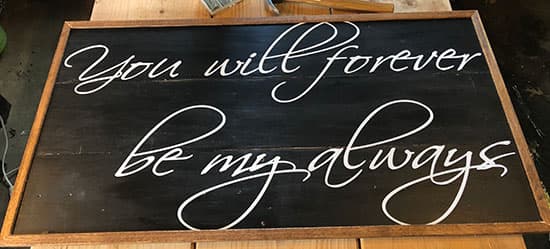 You will forever
be my always